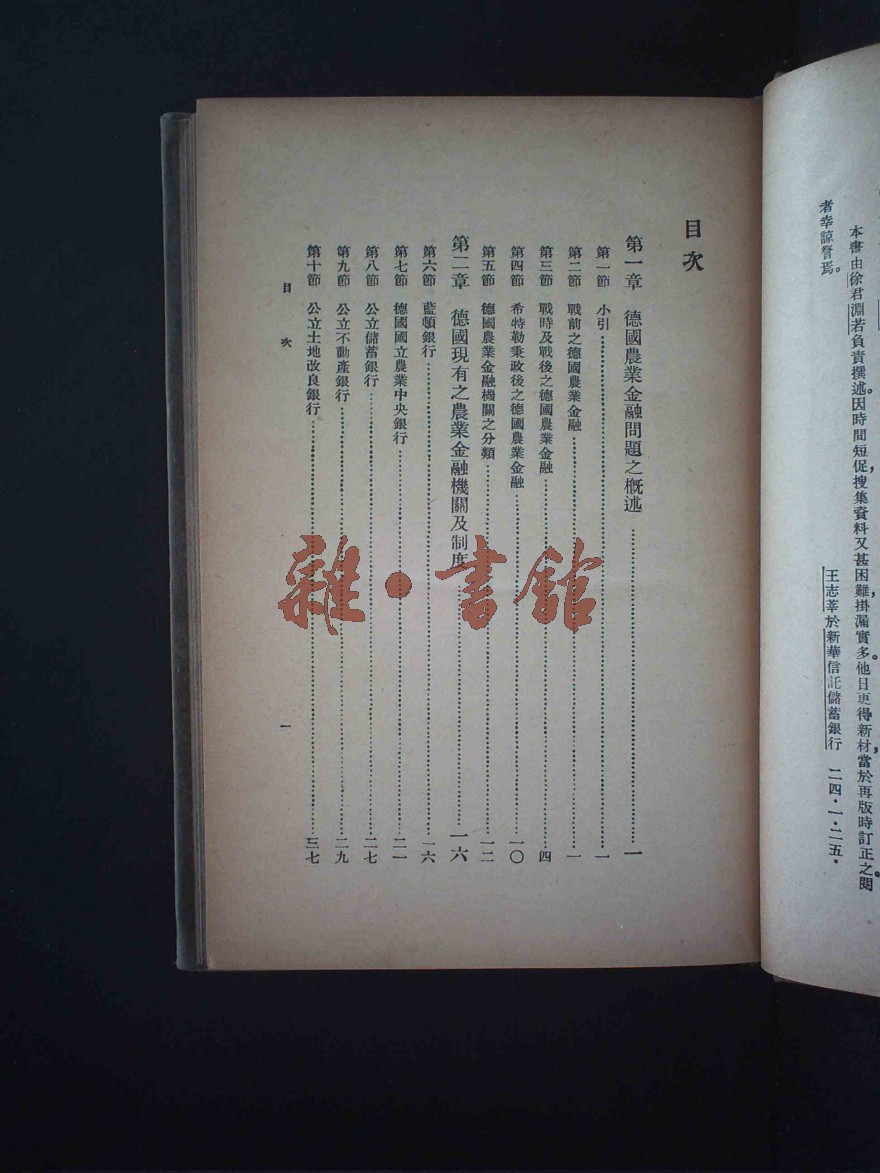 本書由徐君淵若負責撰述。因時間短促，搜集資料又甚困難，掛漏實多。他日更得新材，當於再版時訂正之。閱
者幸諒詧焉。
王志莘於新華信託儲蓄銀行 二四·一·二五·
目次
第一章 德國農業金融問題之概述……一
第一節 小引……一
第二節 戰前之德國農業金融……一
第三節 戰時及戰後之德國農業金融……四
第四節 希特勒秉政後之德國農業金融……一〇
第五節 德國農業金融機關之分類……一二
第二章 德國現有之農業金融機關及制度……一六
第六節 藍頓銀行……一六
第七節 德國國立農業中央銀行……二一
第八節 公立儲蓄銀行……二七
第九節 公立不動產銀行……二九
第十節 公立土地改良銀行……三七
目次 一
雜·書館